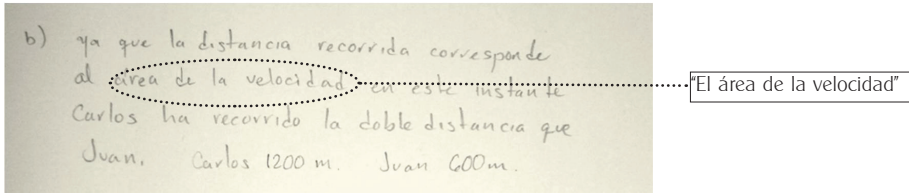 b) ya que la distancia recorrida corresponde
al área de la velocidad en este instante
Carlos ha recorrido la doble distancia que
Juan. Carlos 1200 m. Juan 600m.
“El área de la velocidad”